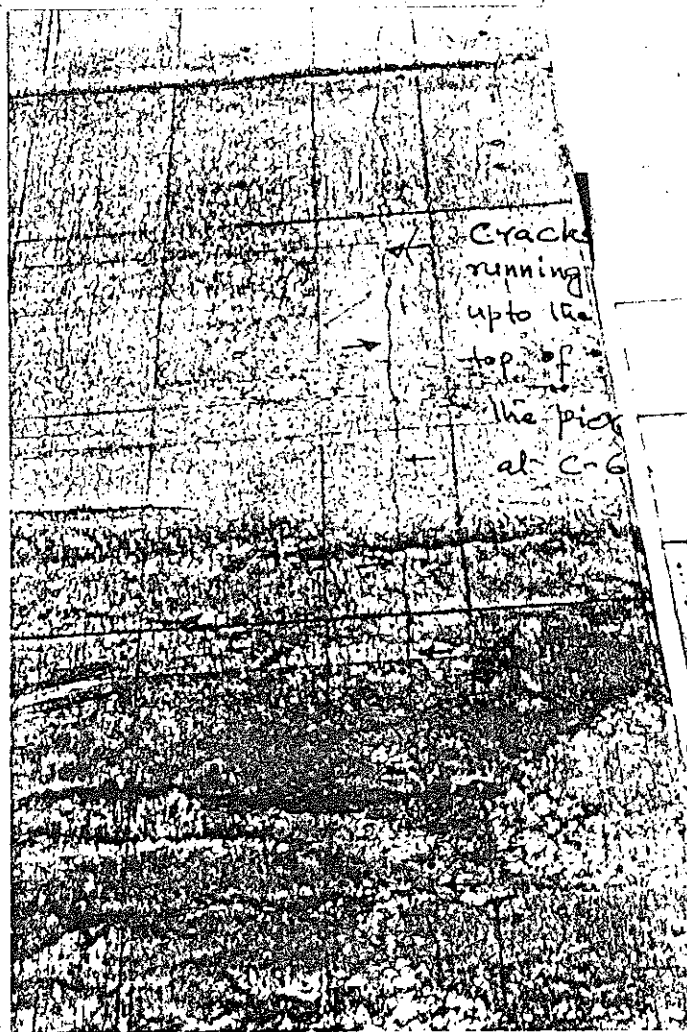 Crack
running
upto the
top of
the pier
at C-6